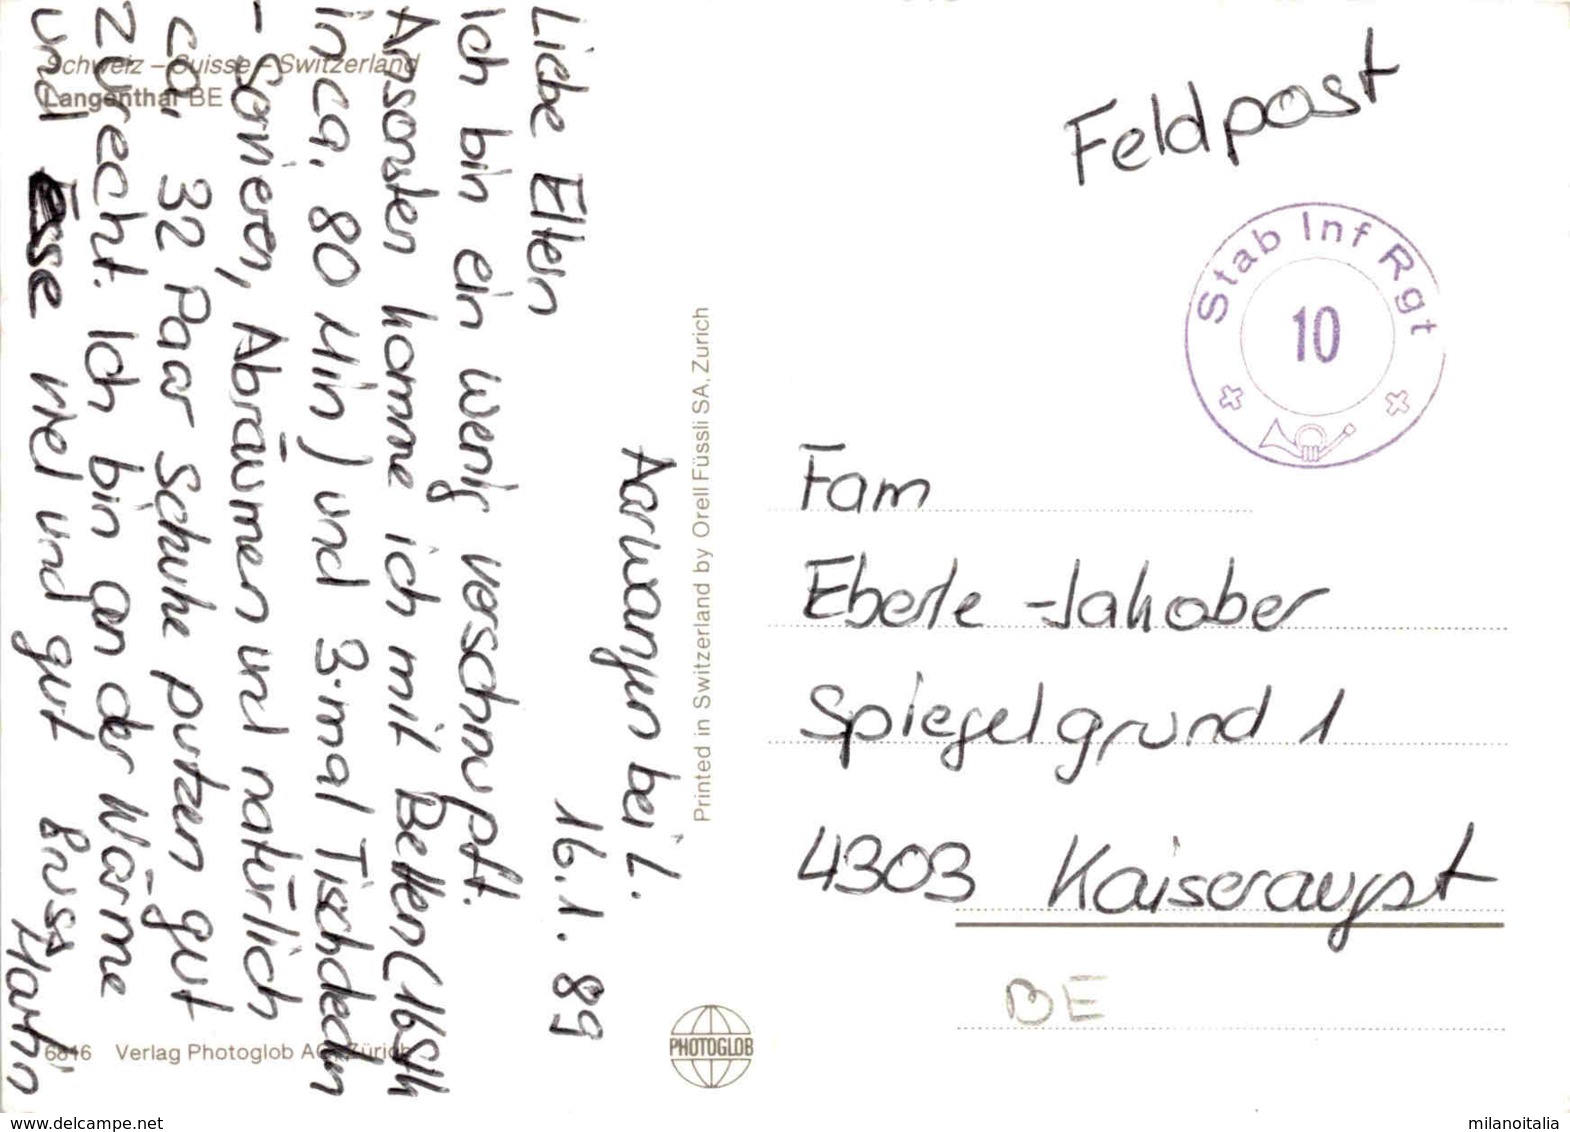 Aarwangen bei L.
16.1.89
Liebe Eltern
Ich bin ein wenig verschnupft.
Ansonsten komme ich mit Betten (16 Stk
in ca. 80 Min) und 3-mal Tischdecken
- Servieren, Abräumen und natürlich
ca. 32 Paar Schuhe putzen gut
zurecht. Ich bin an der Wärme
und esse viel und gut Gruss Martin
Schweiz – Suisse – Switzerland
Langenthal BE
6816 Verlag Photoglob AG, Zürich
Printed in Switzerland by Orell Füssli SA, Zurich
PHOTOGLOB
Feldpost
Stab Inf Rgt
10
Fam
Eberle-Jakober
Spiegelgrund 1
4303 Kaiseraugst
BE
www.delcampe.net
milanoitalia